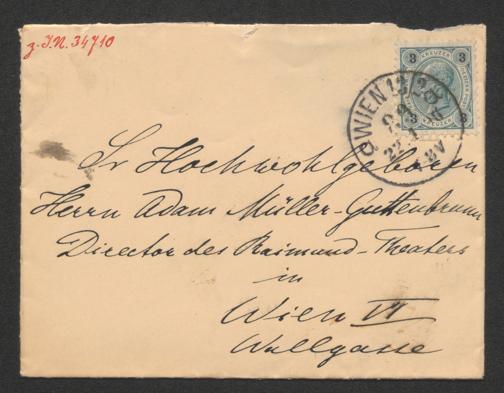 z. J.N. 34710
3 KREUZER 3
3 KREUZER 3
WIEN
Sr Hochwohlgeboren
Herrn Adam Müller-Guttenbrunn
Director des Raimund-Theaters
in
Wien VI
Wallgasse